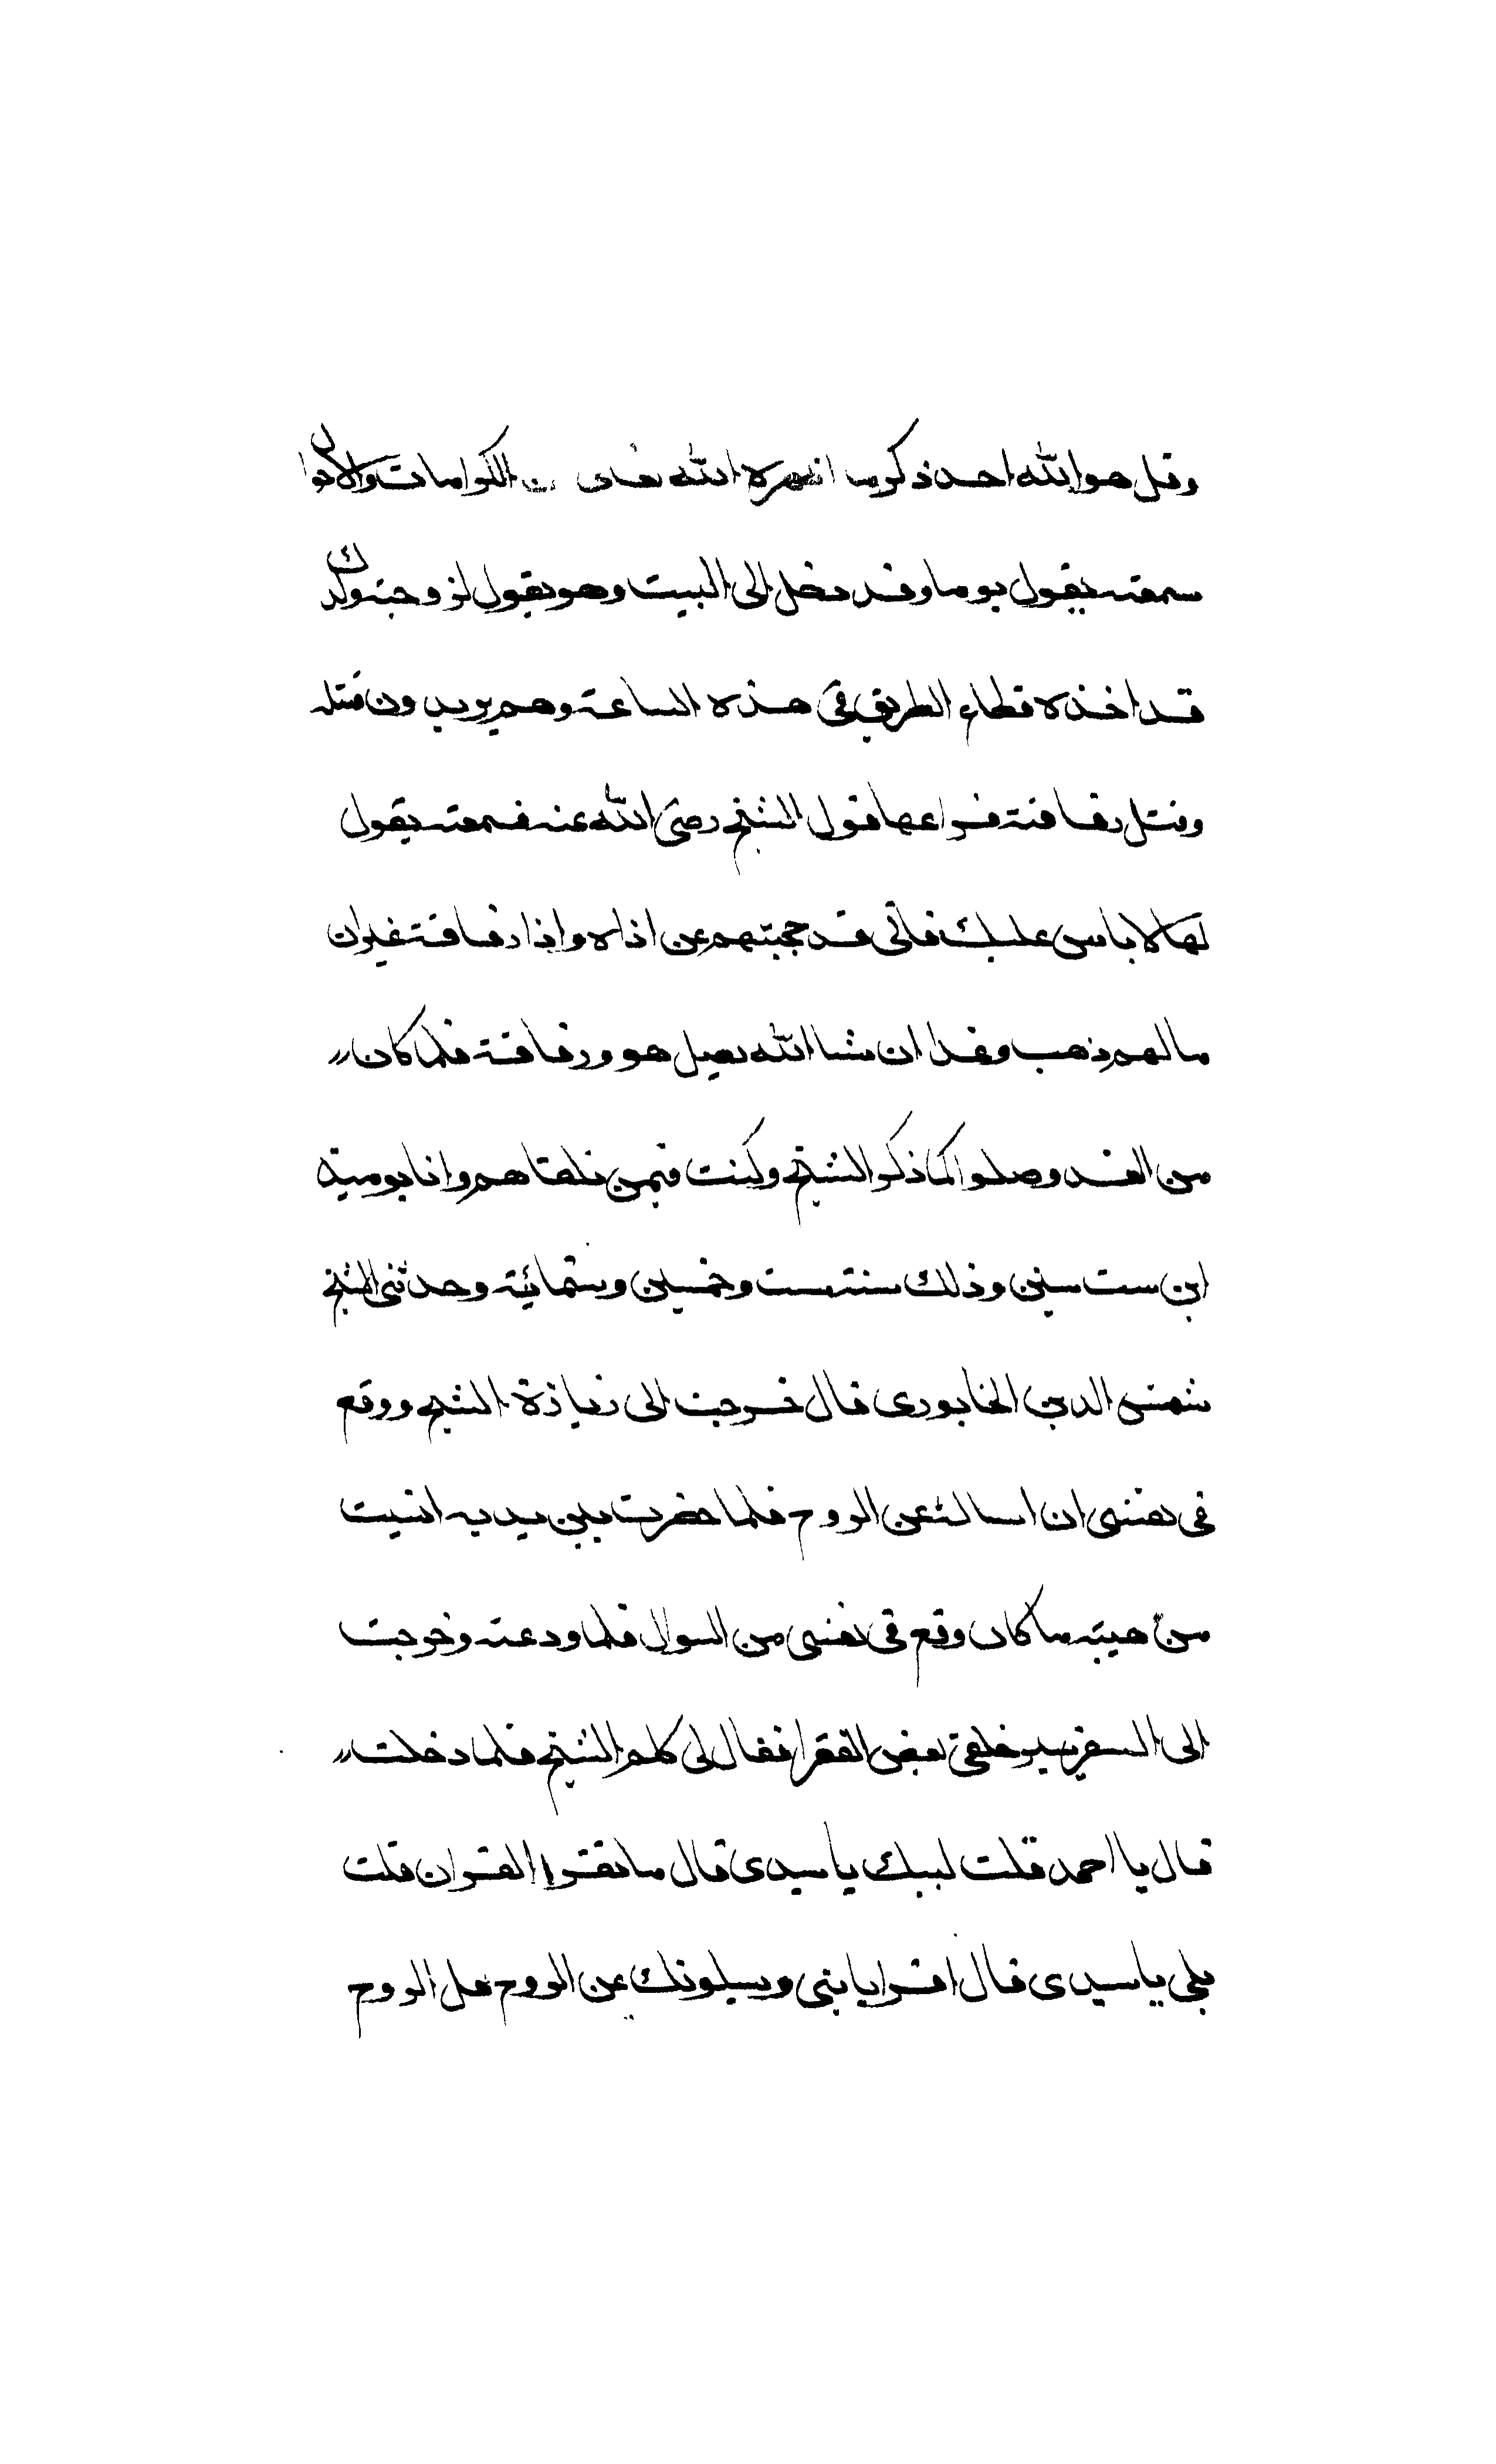 وقل هو الله احد ذكر ما اظهره الله تعالى من الكرامات والاحوال
سمعته يقول يوما وقد دخل الى البيت وهو يقول لزوجته ولدك
قد اخذه قطاع الطريق في هذه الساعة وهم يريدون قتله
وقتل رفاقته فراعها قول الشيخ رضى الله عنه فسمعته يقول
لها لا باس عليك فانى قد حجبتهم عن اذاه واذا رفاقته غير ان
مالهم ذهب وغدا ان شا الله يصل هو ورفاقته فلما كان
من الغد وصلوا كما ذكر الشيخ وكنت فيمن تلقاهم وانا يوميذ
ابن ست سنين وذلك سنة ست وخمسين وستمائية وحدثنى الشيخ
شمس الدين الخابورى قال خرجت الى زيارة الشيخ ووقع
في نفسى ان اساله عن الروح فلما حضرت بين يديه انسيت
من هيبته ما كان وقع في نفسى من السوال فلما ودعته وخرجت
الى السفر سير خلفى بعض الفقرا فقال لى كلم الشيخ فلما دخلت
قال يا احمد قلت لبيك يا سيدى قال ما تقرا القران قلت
بلى يا سيدى قال اقرا يا بنى ويسيلونك عن الروح قل الروح